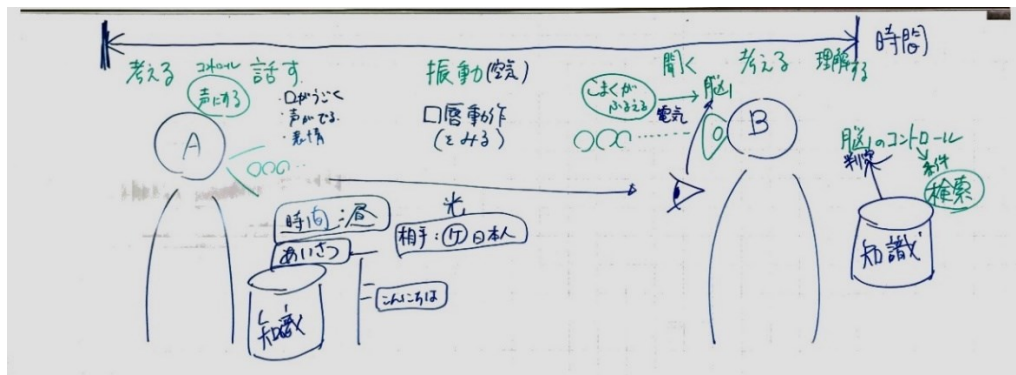 時間
考える コントロール 話す 振動(空気) 聞く 考える 理解する
声にする
・口がうごく
・声がでる
・表情
口唇動作
(をみる)
こまくが
ふるえる
電気
脳
A
B
脳のコントロール
判断
条件
検索
知識
光
時間:昼
相手:ケ日本人
あいさつ
こんにちは
知識